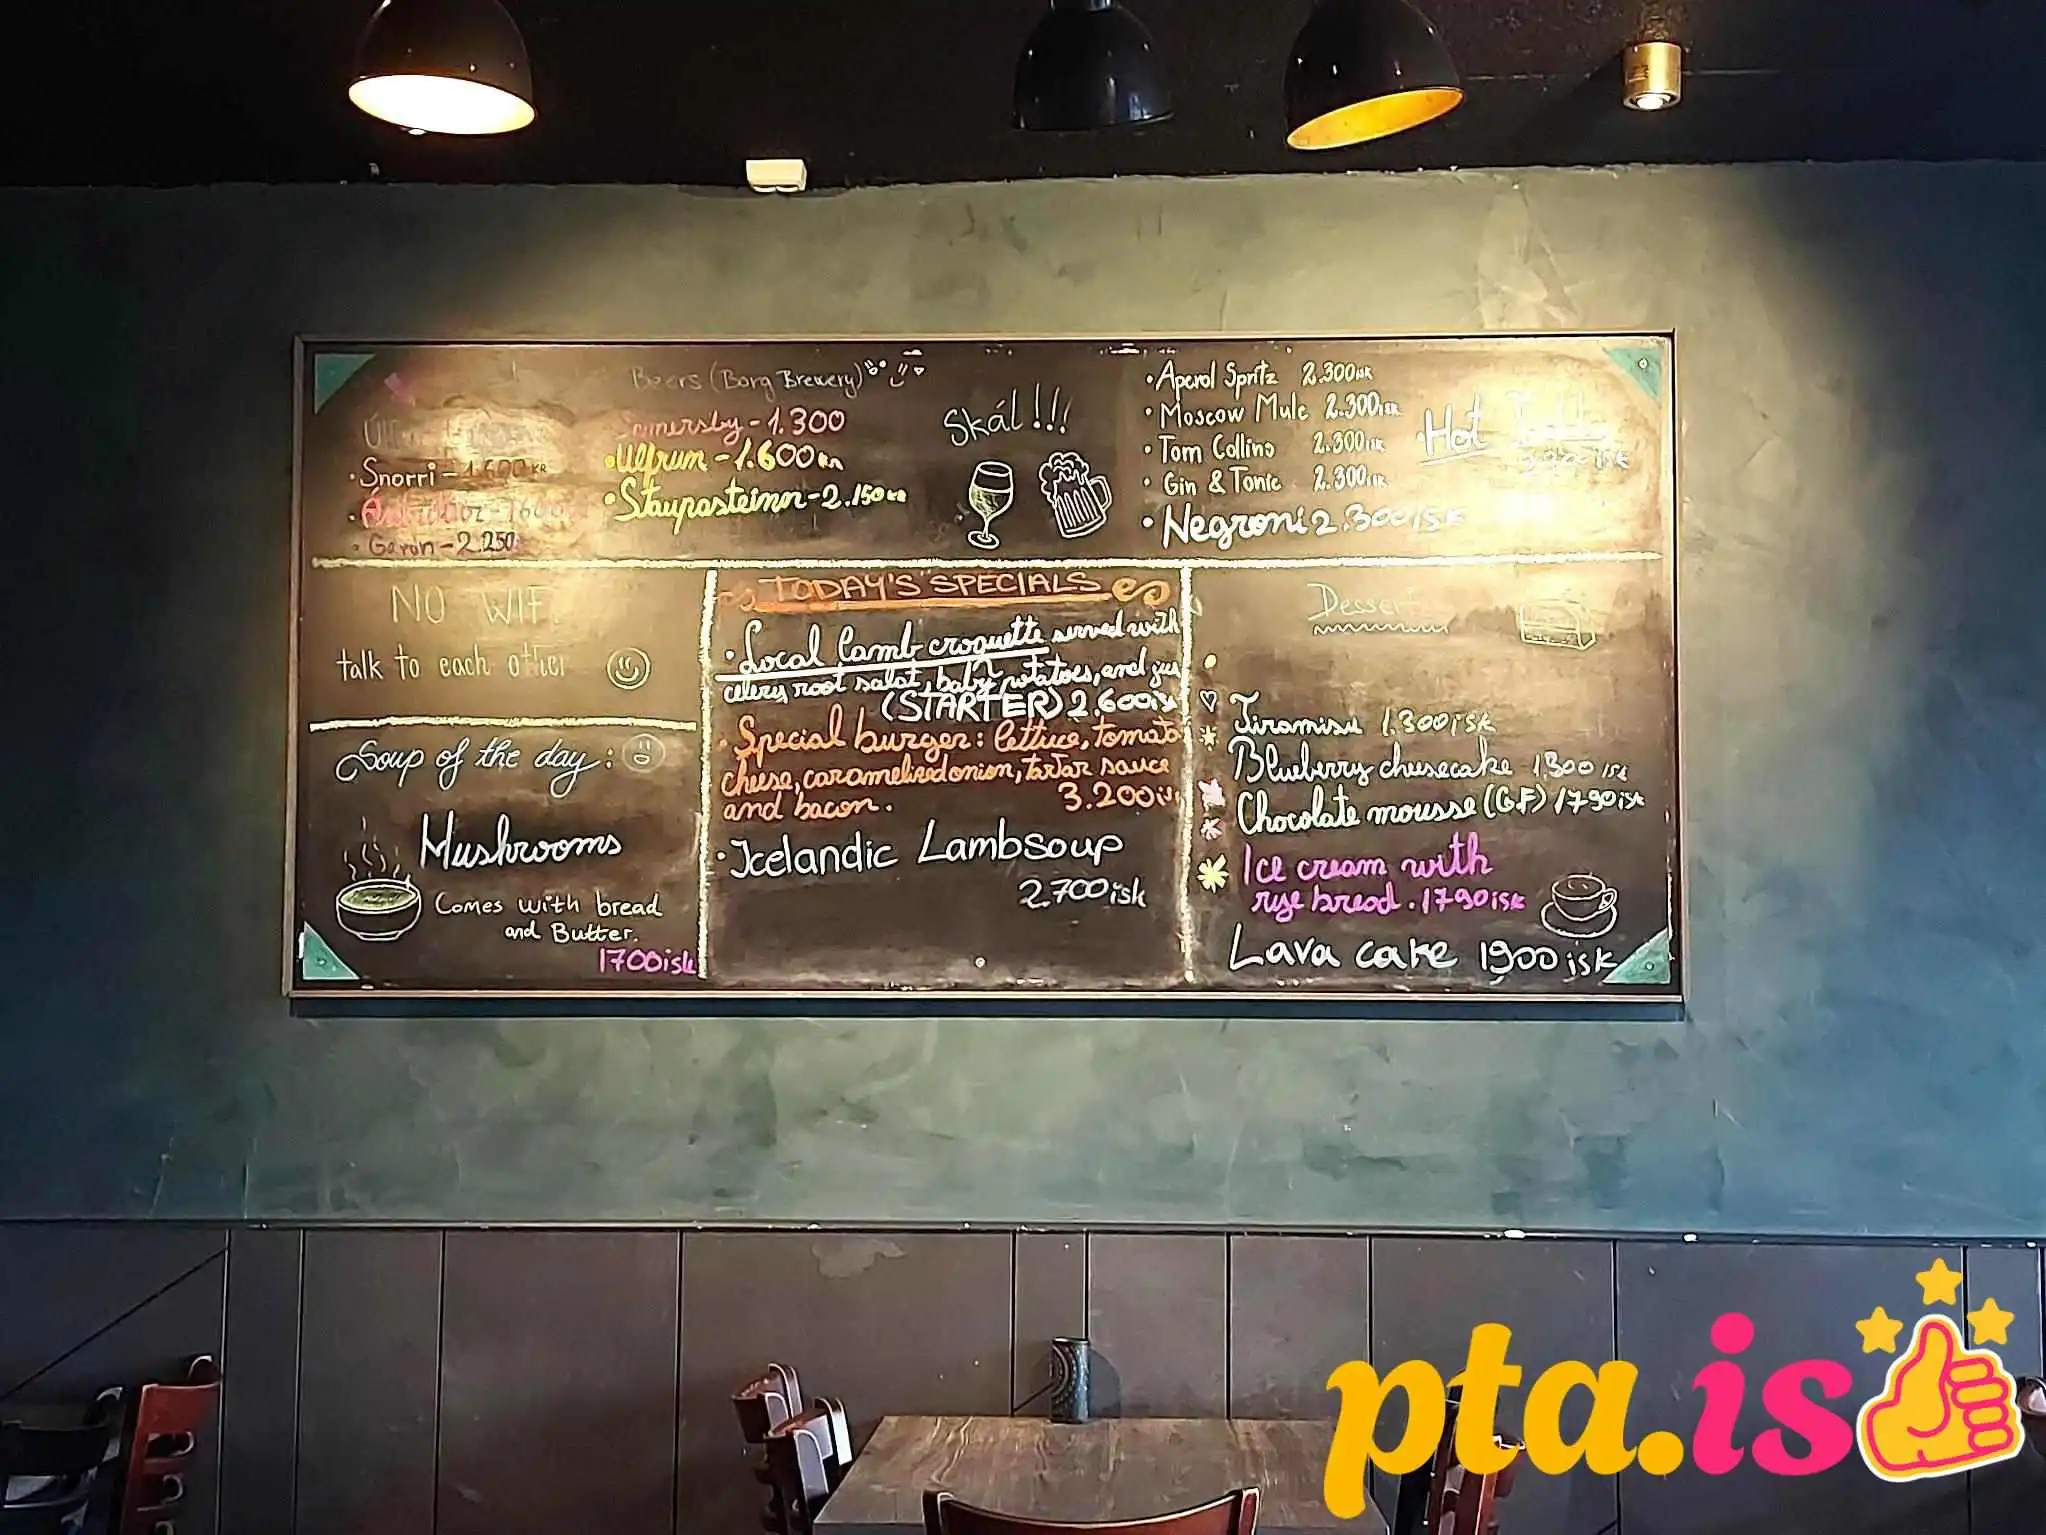 Beers (Borg Brewery)
Somersby - 1.300
• Snorri - 1.600 KR
• Úlfrun - 1.600 kr
• Garún - 2.250
• Stauparsteinn - 2.150 kr
Skál!!!
• Aperol Spritz 2.300 ISK
• Moscow Mule 2.300 isk
• Tom Collins 2.300 isk
• Gin & Tonic 2.300 isk
• Negroni 2.300 isk
Hot
NO WIFI
talk to each other
Soup of the day:
Mushrooms
Comes with bread
and Butter.
1700 isk
TODAY'S "SPECIALS
• Local lamb croquette served with
celery root salat, baby potatoes, and jus
(STARTER) 2.600 isk
• Special burger: lettuce, tomato
cheese, caramelised onion, tartar sauce
and bacon. 3.200 isk
• Icelandic Lambsoup
2.700 isk
Dessert
Tiramisu 1.300 isk
Blueberry cheesecake 1.300 isk
Chocolate mousse (GF) 1790 isk
Ice cream with
rye bread. 1790 isk
Lava cake 1900 isk
pta.is